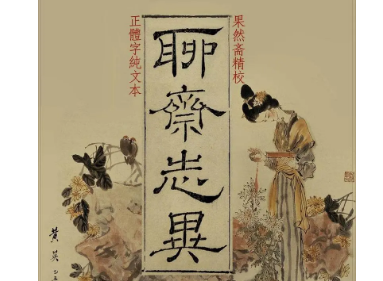 果然斋精校
聊齋志異
正體字純文本
黄英